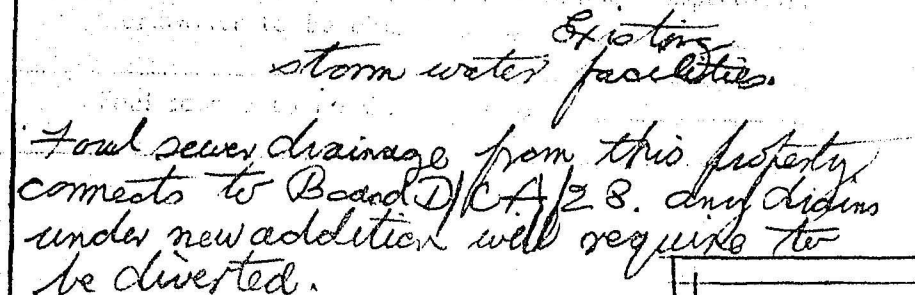 Existing
storm water facilities.
Foul sewer drainage from this property
connects to Board D/CA/28. any drains
under new addition will require to
be diverted.